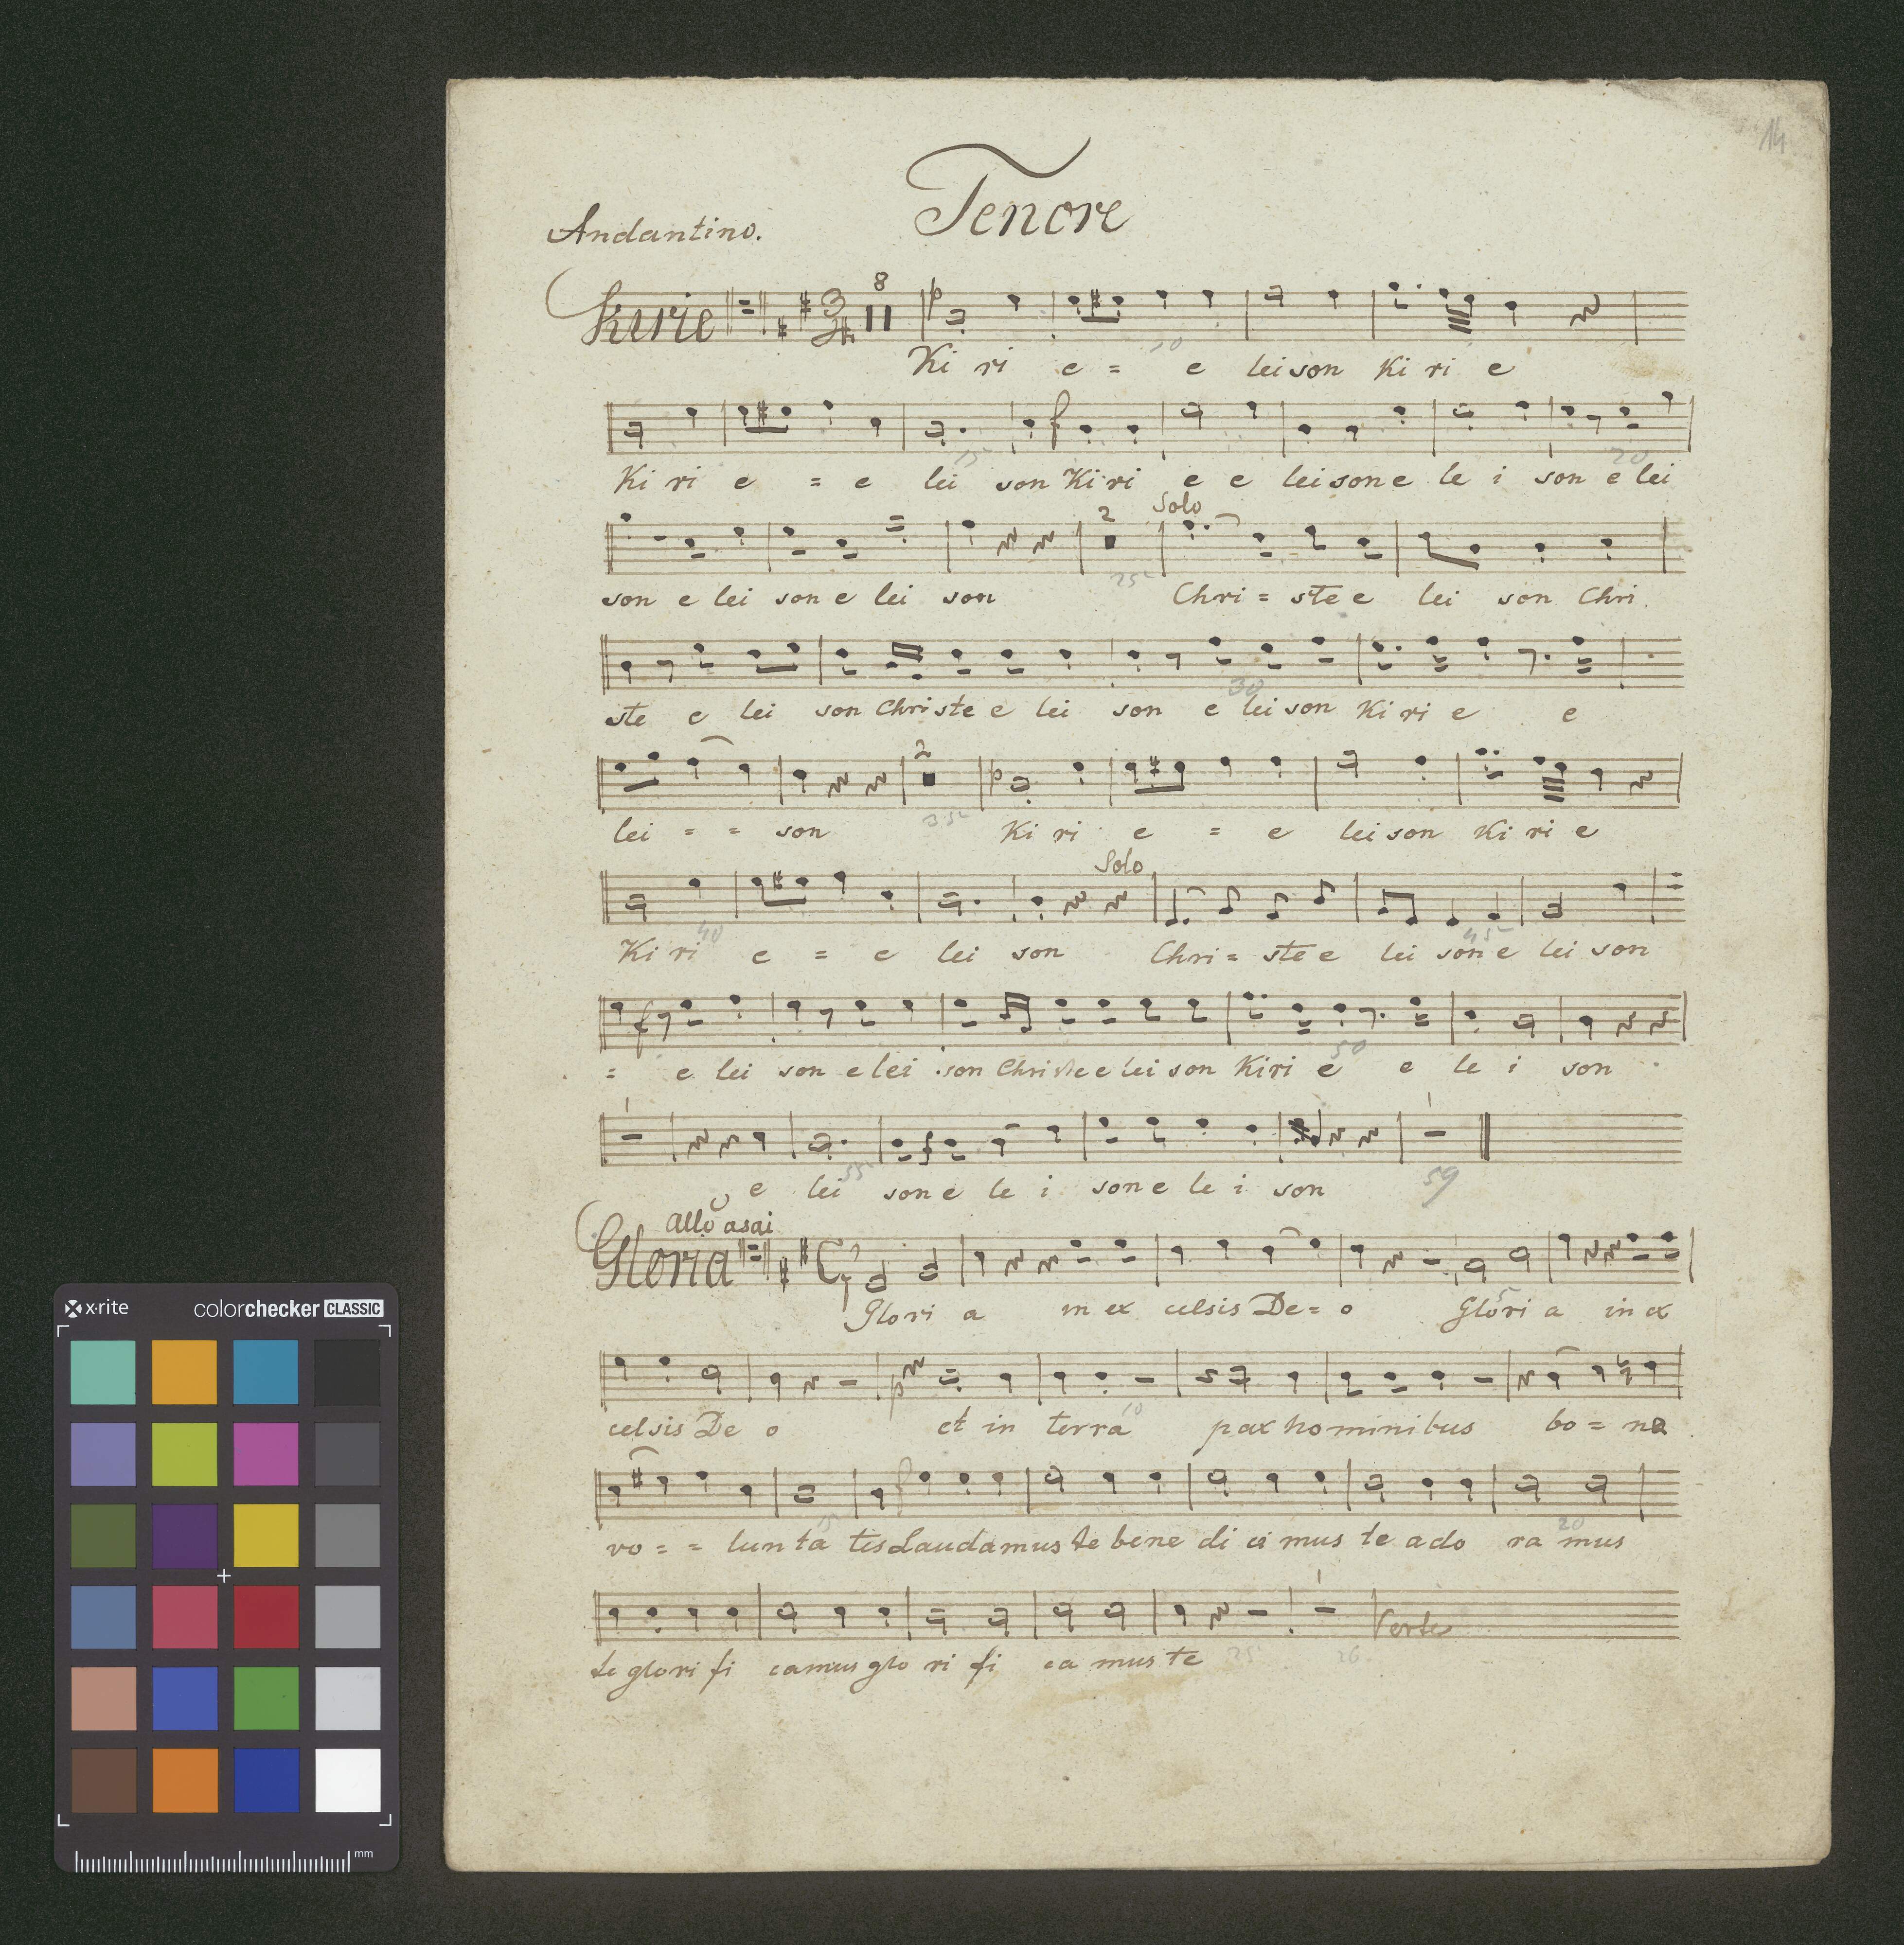 14
Tenore
Andantino.
8
Kirie 3 p
Ki ri e = e lei son Ki ri e
f
Ki ri e = e lei son Ki ri e e lei son e le i son e lei
2 Solo
son e lei son e lei son Chri = ste e lei son Chri.
ste e lei son Christe e lei son e lei son Ki ri e e
2
p
lei = = son Ki ri e = e lei son Ki ri e
Solo
Ki ri e = e lei son Chri = ste e lei son e lei son
f
= e lei son e lei son Christe e lei son Kiri e e le i son
f
e lei son e le i son e le i son
59
Allo asai
Gloria C
Glori a in ex celsis De = o Glori a in ex
p
celsis De o et in terra pax hominibus bo = na
f
vo = = lun ta tis Laudamus te bene di ci mus te ado ra mus
Verte
te glori fi camus glo ri fi ca mus te
x·rite colorchecker CLASSIC
mm